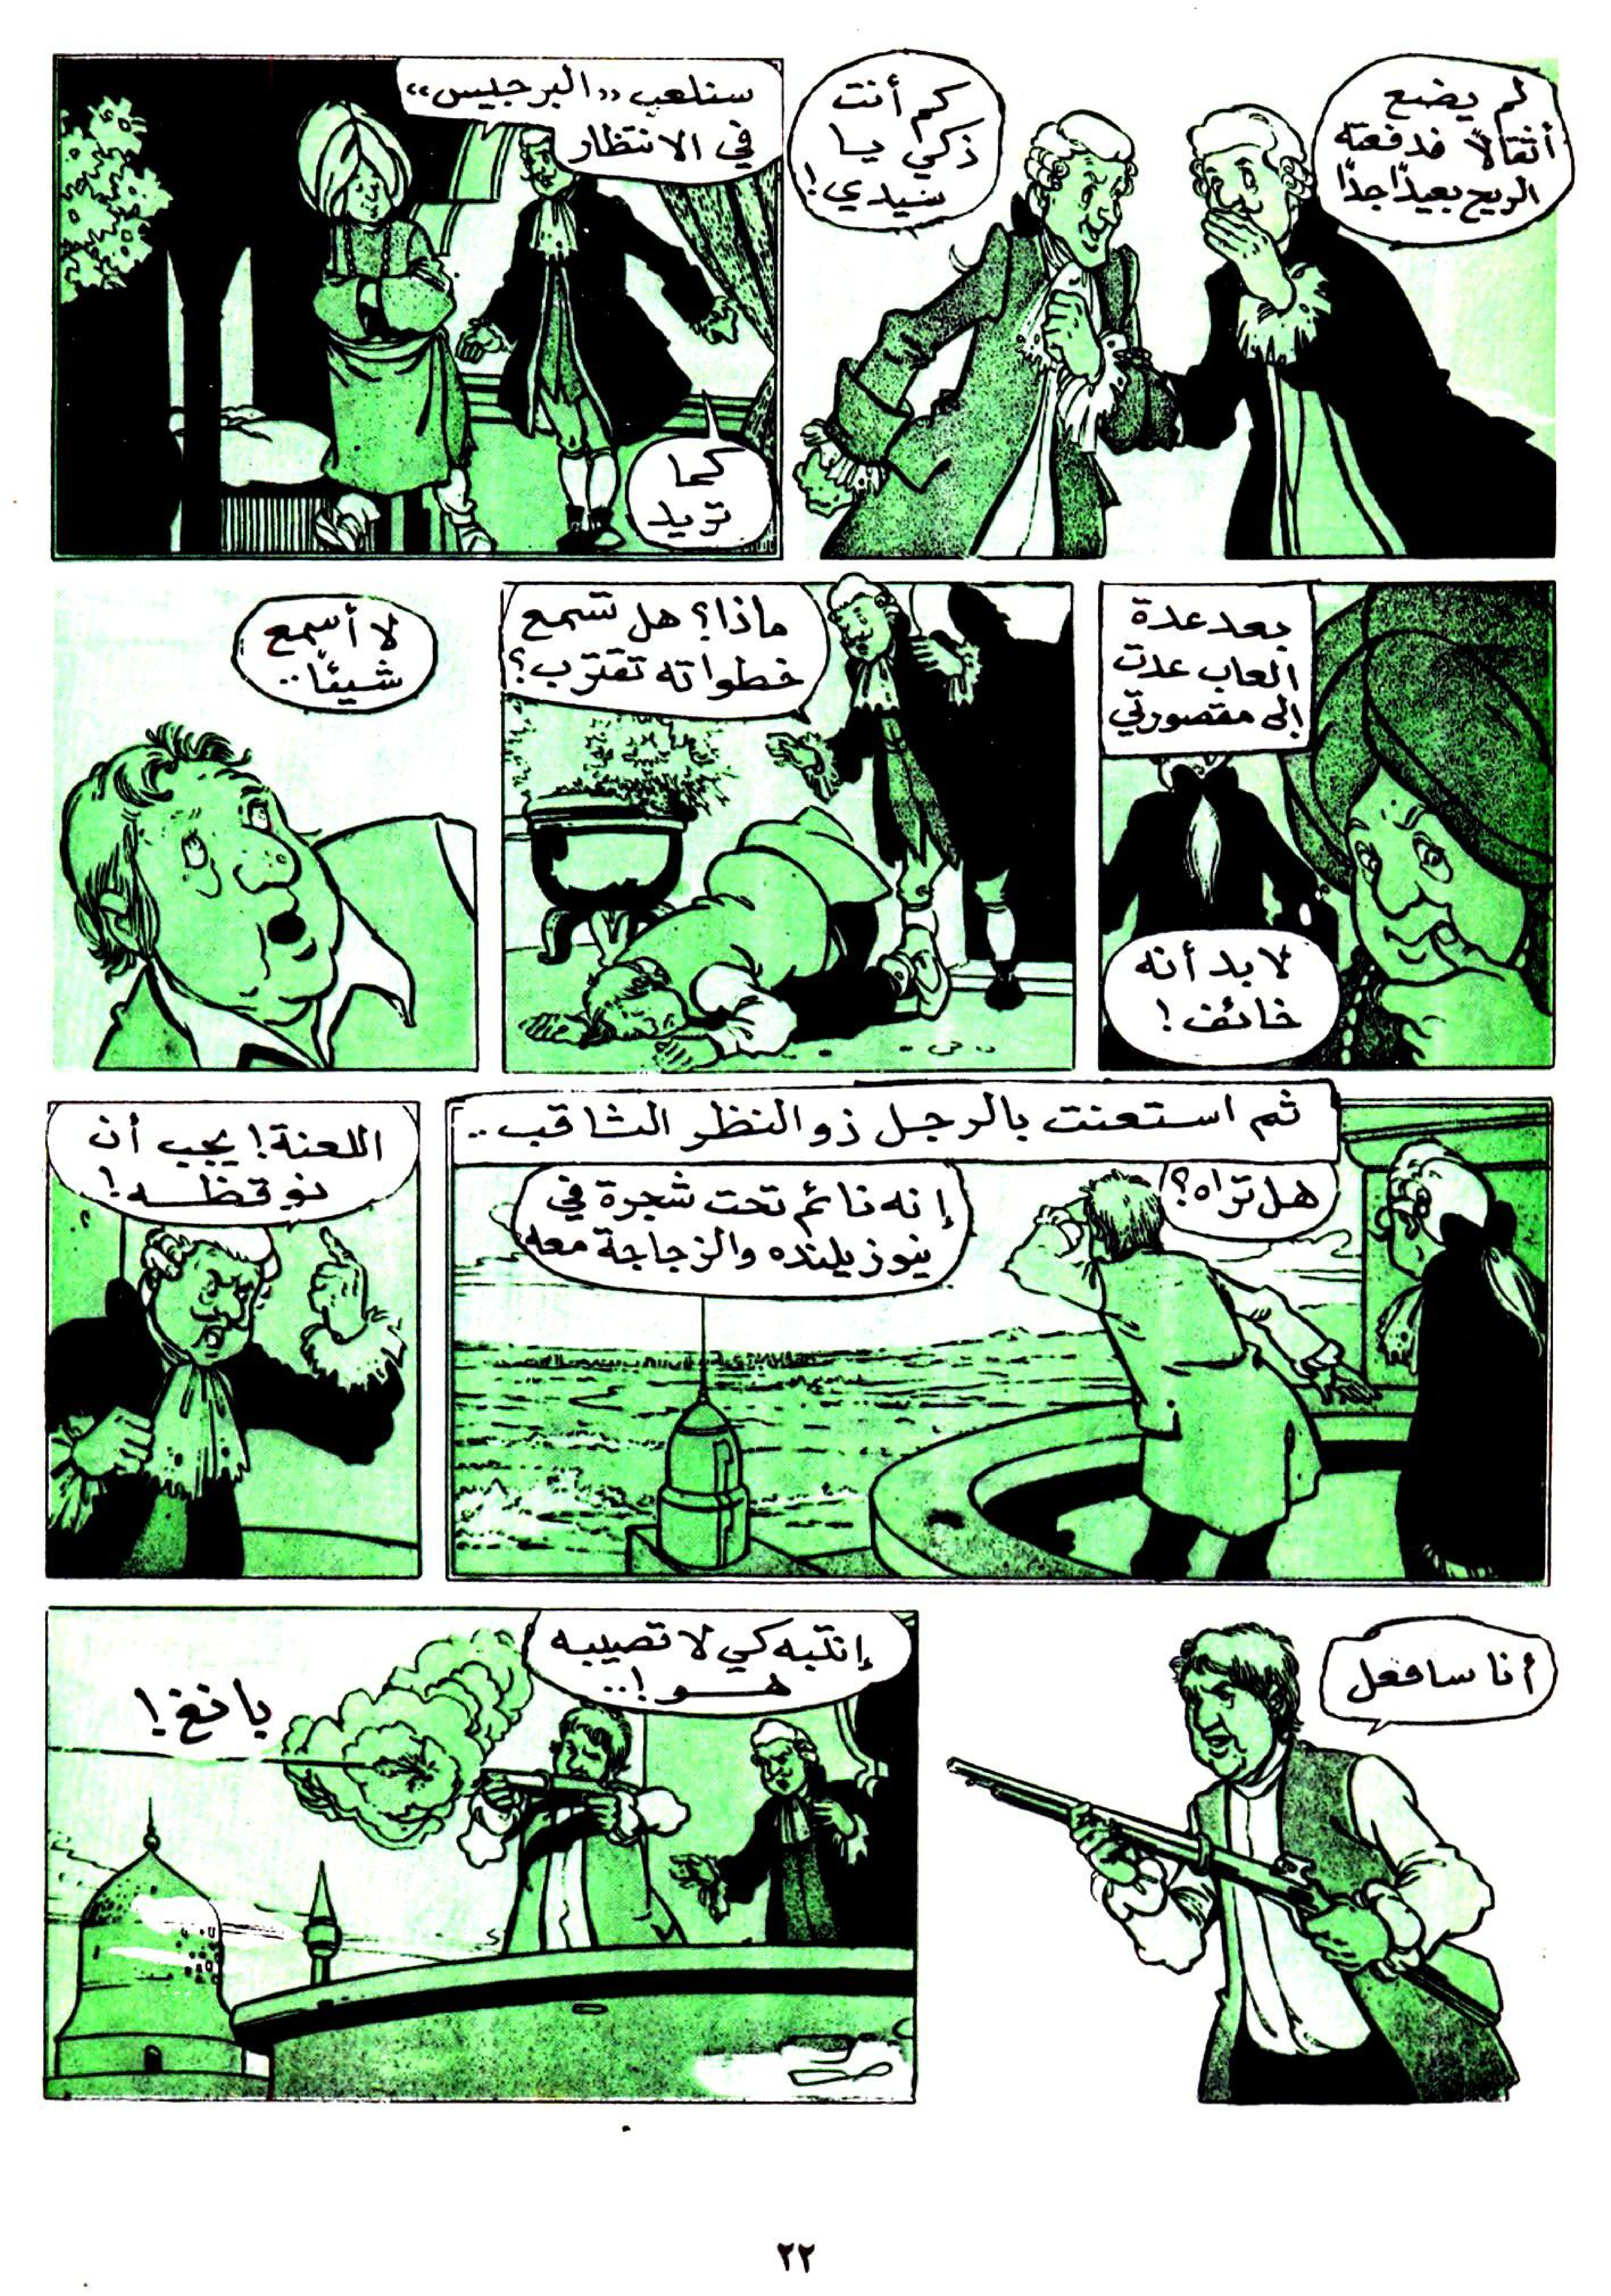 لم يضع
أثقالاً فدفعته
الريح بعيدًا جدًا
كم أنت
ذكي يا
سيدي!
سنلعب «البرجيس»
في الانتظار
كما
تريد
بعد عدة
ألعاب عدت
إلى مقصورتي
لا بد أنه
خائف!
ماذا؟ هل تسمع
خطواته تقترب؟
لا أسمع
شيئًا..
ثم استعنت بالرجل ذو النظر الثاقب..
هل تراه؟
إنه نائم تحت شجرة في
نيوزيلنده والزجاجة معه
اللعنة! يجب أن
نوقظه!
أنا سافعل
إنتبه كي لا تصيبه
هو!..
بانغ!
٢٢